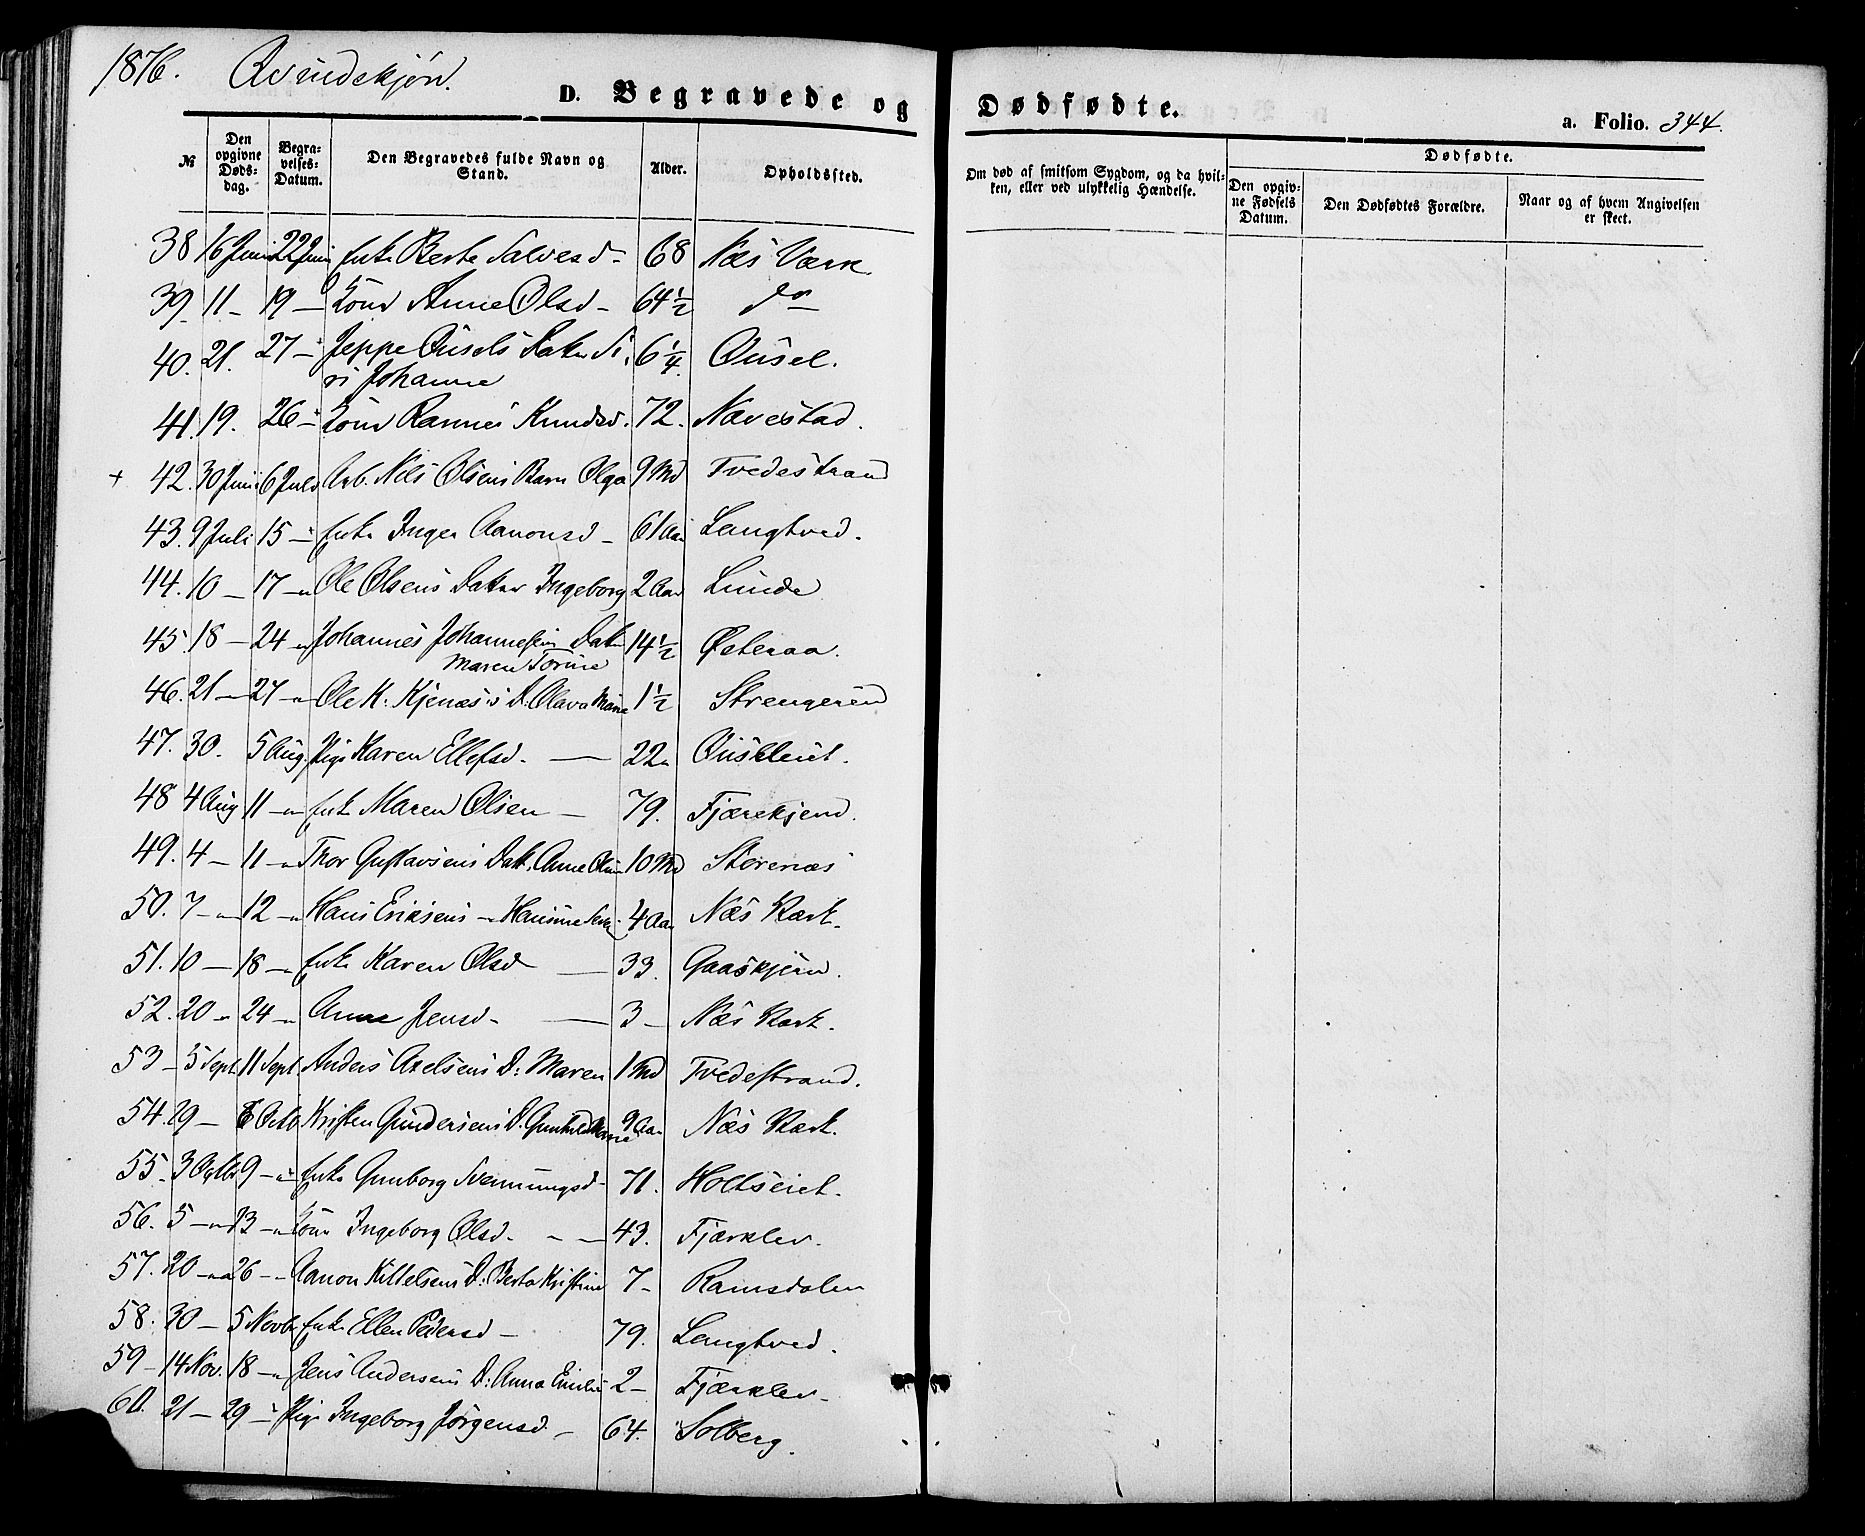 1876. Qvindekjön.
D. Begravede og Dødfødte.
a. Folio. 344.
№
Den opgivne Døds-dag.
Begra-velses-Datum.
Den Begravedes fulde Navn og Stand.
Alder.
Opholdssted.
Om død af smitsom Sygdom, og da hvil-ken, eller ved ulykkelig Hændelse.
Dødfødte.
Den opgiv-ne Fødsels Datum.
Den Dødfødtes Forældre.
Naar og af hvem Angivelsen er skeet.
38 16 Juni 22 Juni Enke Berte Salvesd - 68 Næs Værk
39 11 - 19 - Kone Anne Olsd - 64 1/2 do -
40. 21. 27 - Jeppe Ousels Datter Si- 6 1/4 Ousel.
ri Johanne
41. 19. 26 - Kone Rannei Knudsd. 72. Navestad.
+ 42. 30 Juni 6 Juli Arb. Nils Olsens Barn Olga 9 Md Tvedestrand
43. 9 Juli 15 - Enke Inger Aanonsd - 61 Aar Langtved.
44. 10 - 17 - Ole Olsens Datter Ingeborg 2 Aar Lunde
45. 18 - 24 - Johannes Johannesens Datter 14 1/2 Østeraa.
Maren Torine
46. 21 - 27 - Ole K. Kjenæs's D. Olava Marie 1 1/2 Strengereid
47. 30. 5 Aug. Pige Karen Ellefsd. - 22 Ouskleiet.
48 4 Aug 11 - Enke Maren Olsen - 79. Fjærekjend.
49. 4 - 11 - Thor Gustavsens Datt. Anne 10 Md Storenæs
50. 7 - 12 - Hans Eriksens - Hansine 4 Aar Næs Værk.
51. 10 - 18 - Enke Karen Olsd - 33. Gaaskjern.
52. 20 - 24 - Anne Jensd - 3 - Næs Værk.
53 - 5 Sept. 11 Sept. Anders Axelsens D: Maren 1 Md Tvedestrand.
54. 29 - 6 Octb Kristen Gundersens D. Gunhild Marie 9 Aar Næs Værk.
55. 3 Octbr 9 - Enke Gunborg Svenningsd - 71. Holtseiet.
56. 5 - 13 - Kone Ingeborg Olsd. - - 43. Fjærklev.
57. 20 - 26 - Aanon Kittelsens D: Berta Kristine 7 - Ramsdalen
58. 30 - 5 Novbr Enke Ellen Pedersd - 79. Langtved.
59 - 14 Nov. 18 - Jens Andersens D: Anna Emilie 2 - Fjærklev -
60. 21 - 29 - Pige Ingeborg Jörgensd. - 64. Solberg.